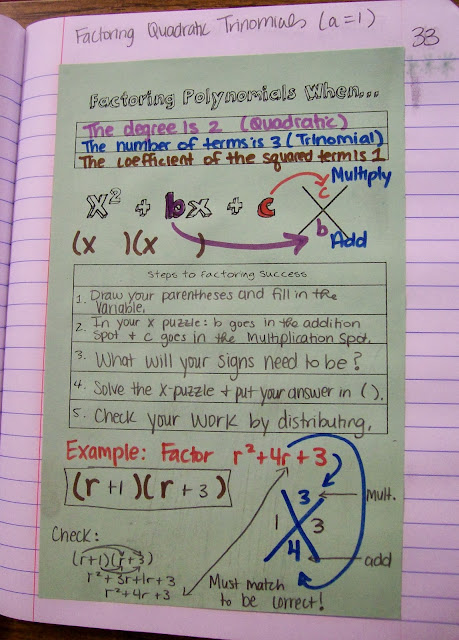 Factoring Quadratic Trinomials (a=1)
33
Factoring Polynomials When...
The degree is 2 (Quadratic)
The number of terms is 3 (Trinomial)
The coefficient of the squared term is 1
Multiply
x² + bx + c
c
(x )(x )
b
Add
Steps to Factoring Success
1. Draw your parentheses and fill in the
variable.
2. In your x puzzle: b goes in the addition
spot + c goes in the multiplication spot.
3. What will your signs need to be?
4. Solve the x-puzzle + put your answer in ( ).
5. Check your work by distributing.
Example: Factor r²+4r+3
(r +1)(r +3)
3
Mult.
1 3
4
add
Check:
(r+1)(r+3)
r²+3r+1r+3
r²+4r+3
Must match
to be correct!